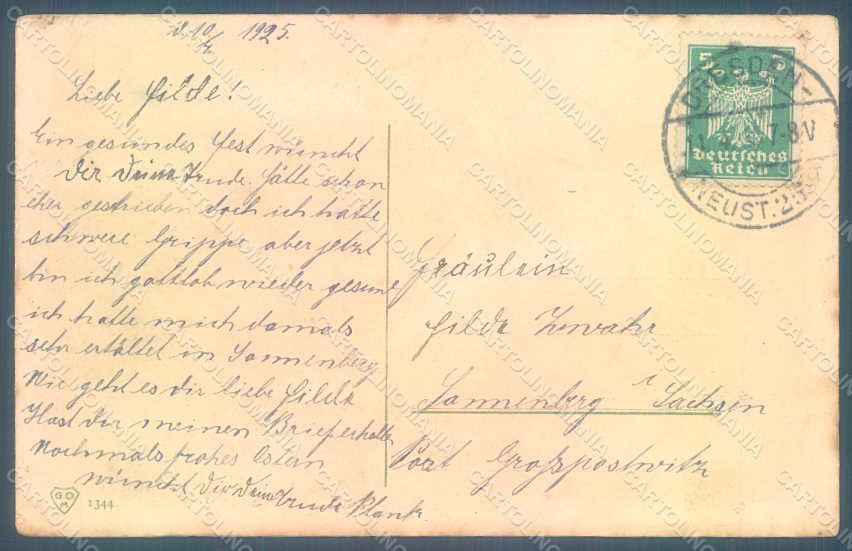 d. 10/4 1925.
Liebe Hilde!
Ein gesundes Fest wünscht
Dir Deine Trude hätte schon
eher geschrieben doch ich hatte
schwere Grippe aber jetzt
bin ich gottlob wieder gesund
ich hatte mich damals
sehr erkältet in Sonnenberg
Wie geht es dir liebe Hilde
Hast du meinen Brief erhalten
Nochmals frohes Ostern
wünscht Dir Deine Trude Plank
G.O.M
1344
5 5
Deutsches
Reich
DRESDEN-
7-8V
NEUST.
Fräulein
Hilde Zwahr
Sonnenberg i. Sachsen
Post Großpostwitz
CARTOLINOMANIA